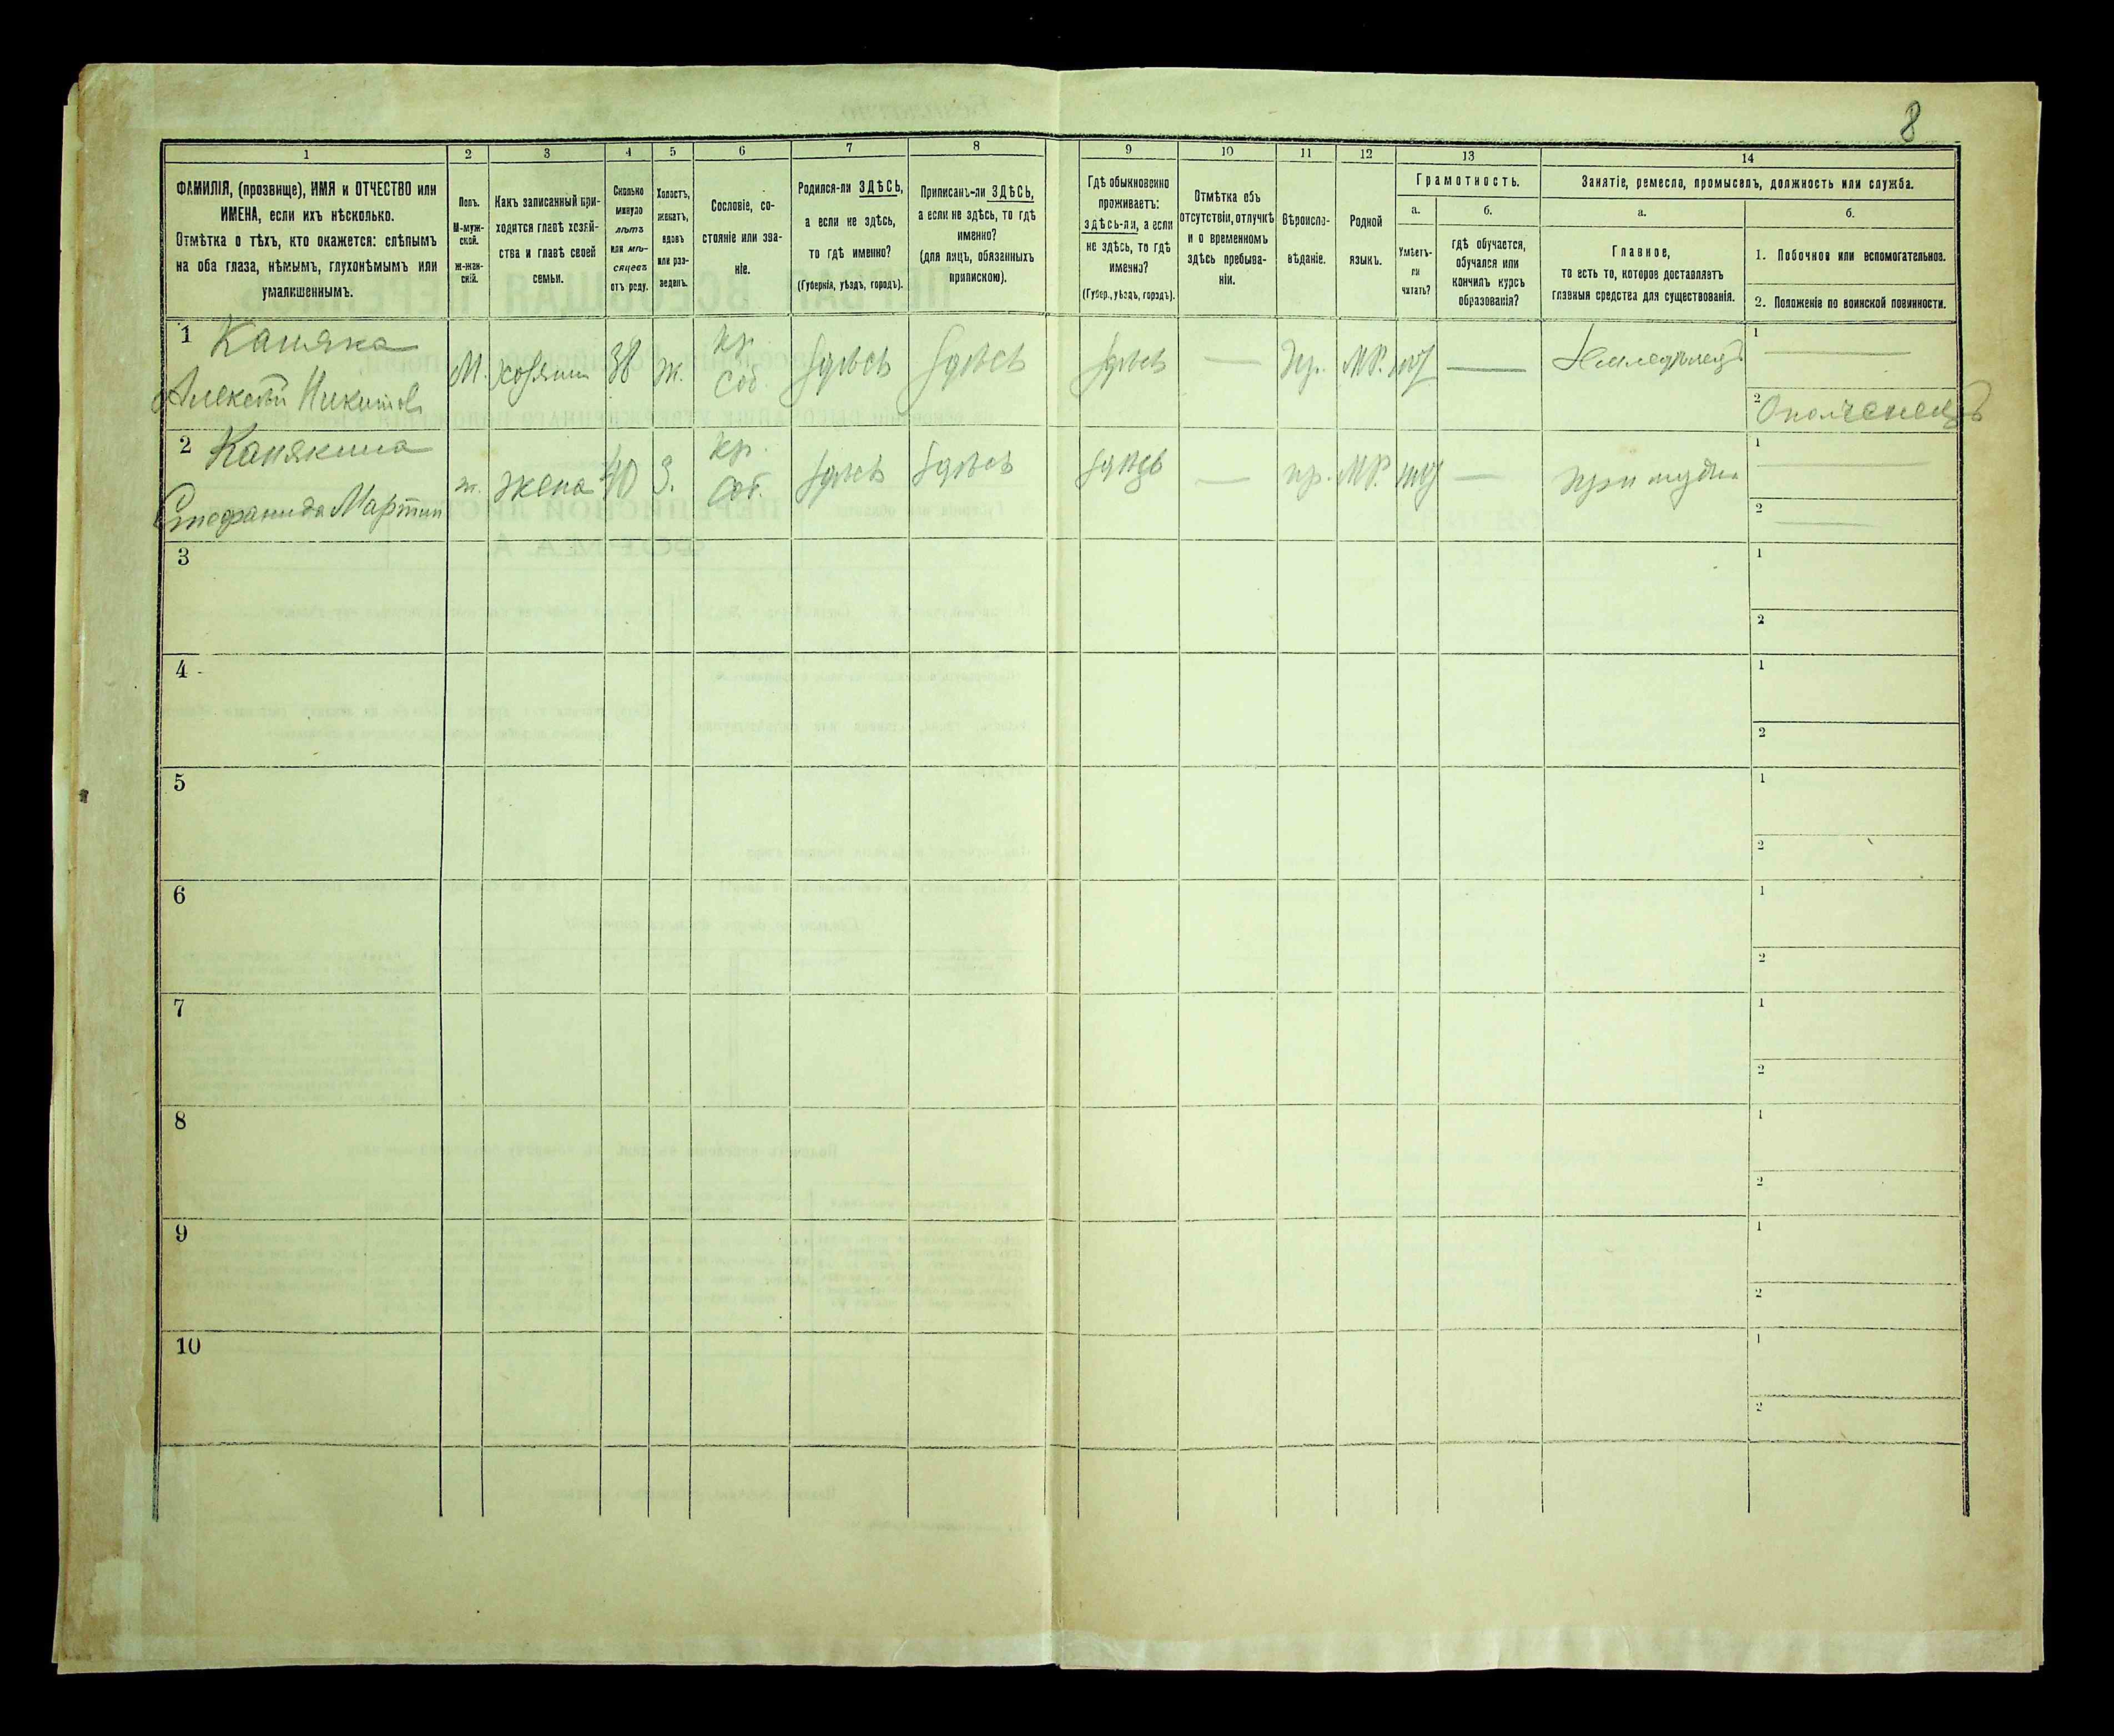 8
1
2
3
4
5
6
7
8
9
10
11
12
13
14
ФАМИЛІЯ, (прозвище), ИМЯ и ОТЧЕСТВО или
ИМЕНА, если ихъ нѣсколько.
Отмѣтка о тѣхъ, кто окажется: слѣпымъ
на оба глаза, нѣмымъ, глухонѣмымъ или
умалишеннымъ.
Полъ.
М-муж-
ской.
Ж-жен-
скій.
Какъ записанный при-
ходится главѣ хозяй-
ства и главѣ своей
семьи.
Сколько
минуло
лѣтъ
или мѣ-
сяцевъ
отъ роду.
Холостъ,
женатъ,
вдовъ
или раз-
веденъ.
Сословіе, со-
стояніе или зва-
ніе.
Родился-ли ЗДѢСЬ,
а если не здѣсь,
то гдѣ именно?
(Губернія, уѣздъ, городъ).
Приписанъ-ли ЗДѢСЬ,
а если не здѣсь, то гдѣ
именно?
(для лицъ, обязанныхъ
припискою).
Гдѣ обыкновенно
проживаетъ:
здѣсь-ли, а если
не здѣсь, то гдѣ
именно?
(Губер., уѣздъ, городъ).
Отмѣтка объ
отсутствіи, отлучкѣ
и о временномъ
здѣсь пребыва-
ніи.
Вѣроиспо-
вѣданіе.
Родной
языкъ.
Грамотность.
а.
Умѣетъ-
ли
читать?
б.
гдѣ обучается,
обучался или
кончилъ курсъ
образованія?
Занятіе, ремесло, промыселъ, должность или служба.
а.
Главное,
то есть то, которое доставляетъ
главныя средства для существованія.
б.
1. Побочное или вспомогательное.
2. Положеніе по воинской повинности.
1 Каняка
Алексѣй Никитовъ
М. хозяинъ 38 ж. кр. соб. здѣсь здѣсь здѣсь — пр. МР. — Земледѣлецъ
1 —
2 Ополченецъ
2 Канякина
Стефанида Мартин
ж. жена 40 З. кр. соб. здѣсь здѣсь здѣсь — пр. МР. — при мужѣ
1 —
2 —
3
1
2
4
1
2
5
1
2
6
1
2
7
1
2
8
1
2
9
1
2
10
1
2